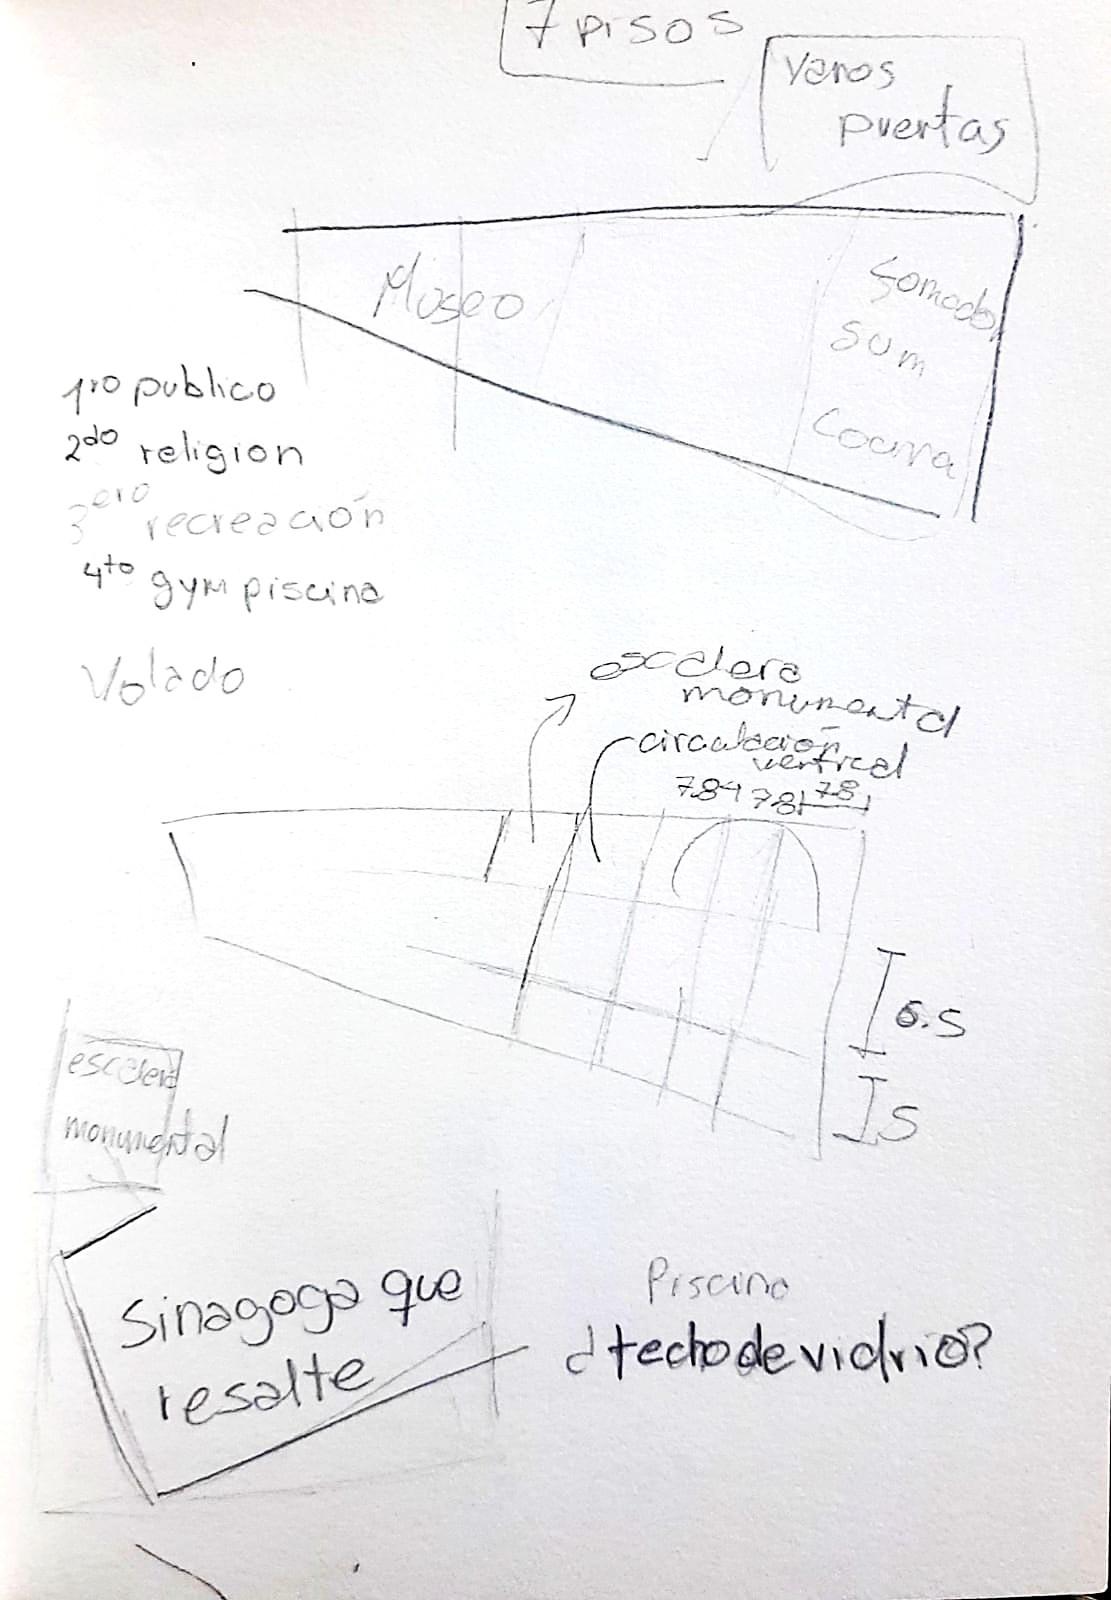 7 pisos
vanos
puertas
Museo
Comedor
SUM
Cocina
1ro publico
2do religion
3ero recreación
4to gym piscina
Volado
escalera
monumental
circulación
vertical
7.84 7.8 7.8
6.5
5
escalera
monumental
Sinagoga que
resalte
Piscina
¿techo de vidrio?